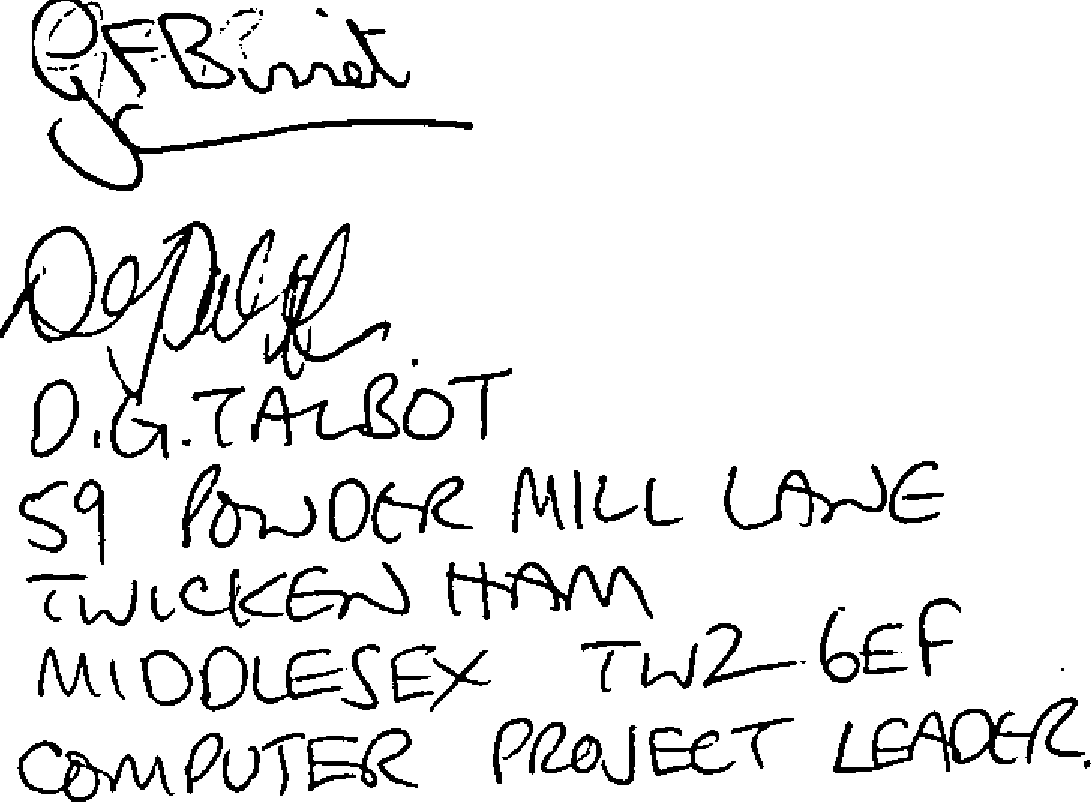 D.G. TALBOT
59 POWDER MILL LANE
TWICKENHAM
MIDDLESEX TW2 6EF
COMPUTER PROJECT LEADER.